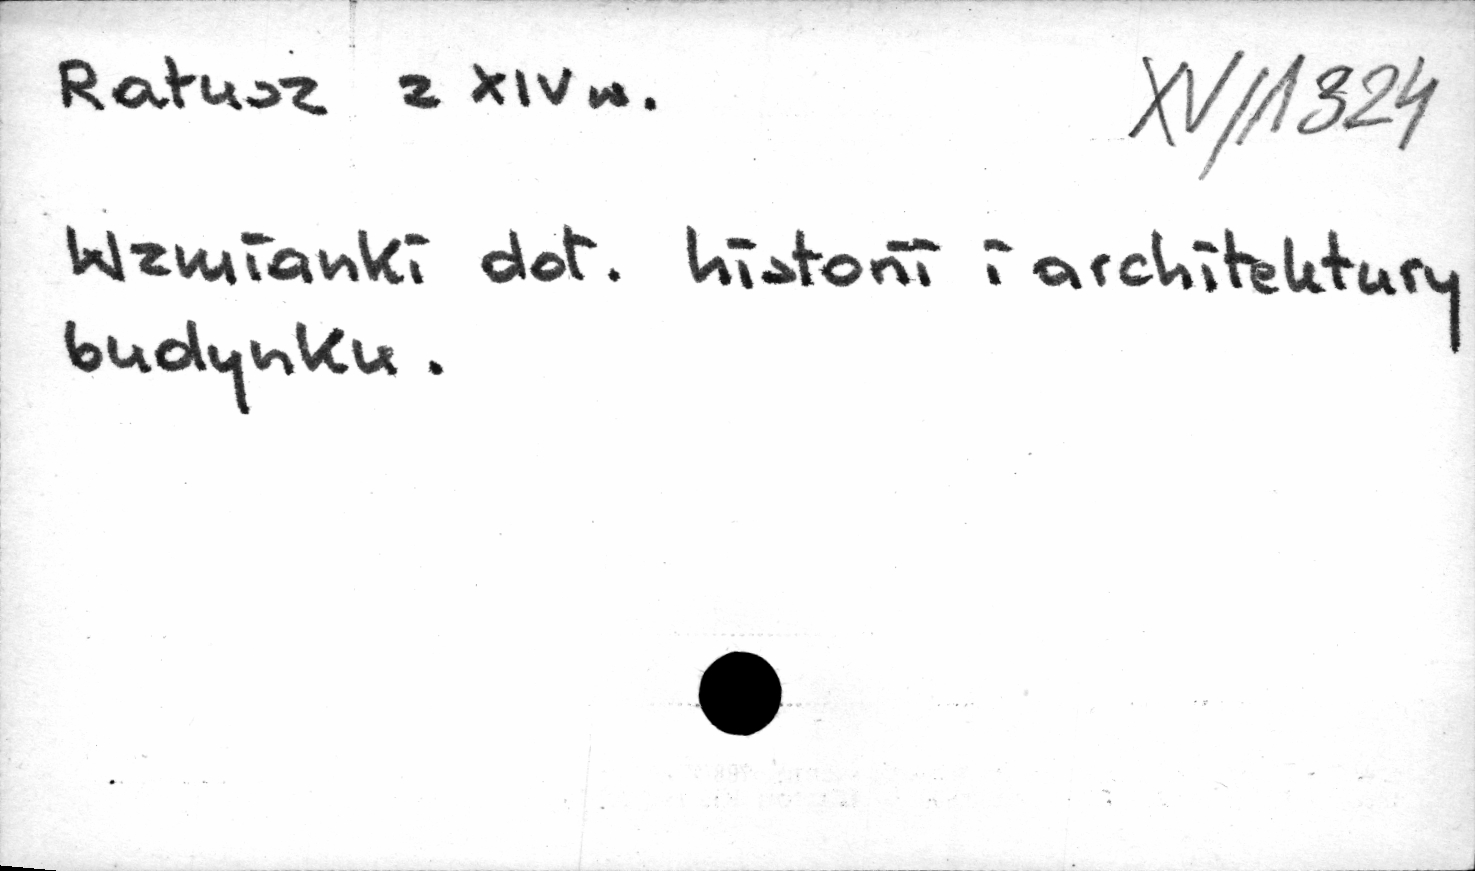 Ratusz z XIV w.
XV/1324
Wzmianki dot. historii i architektury
budynku.